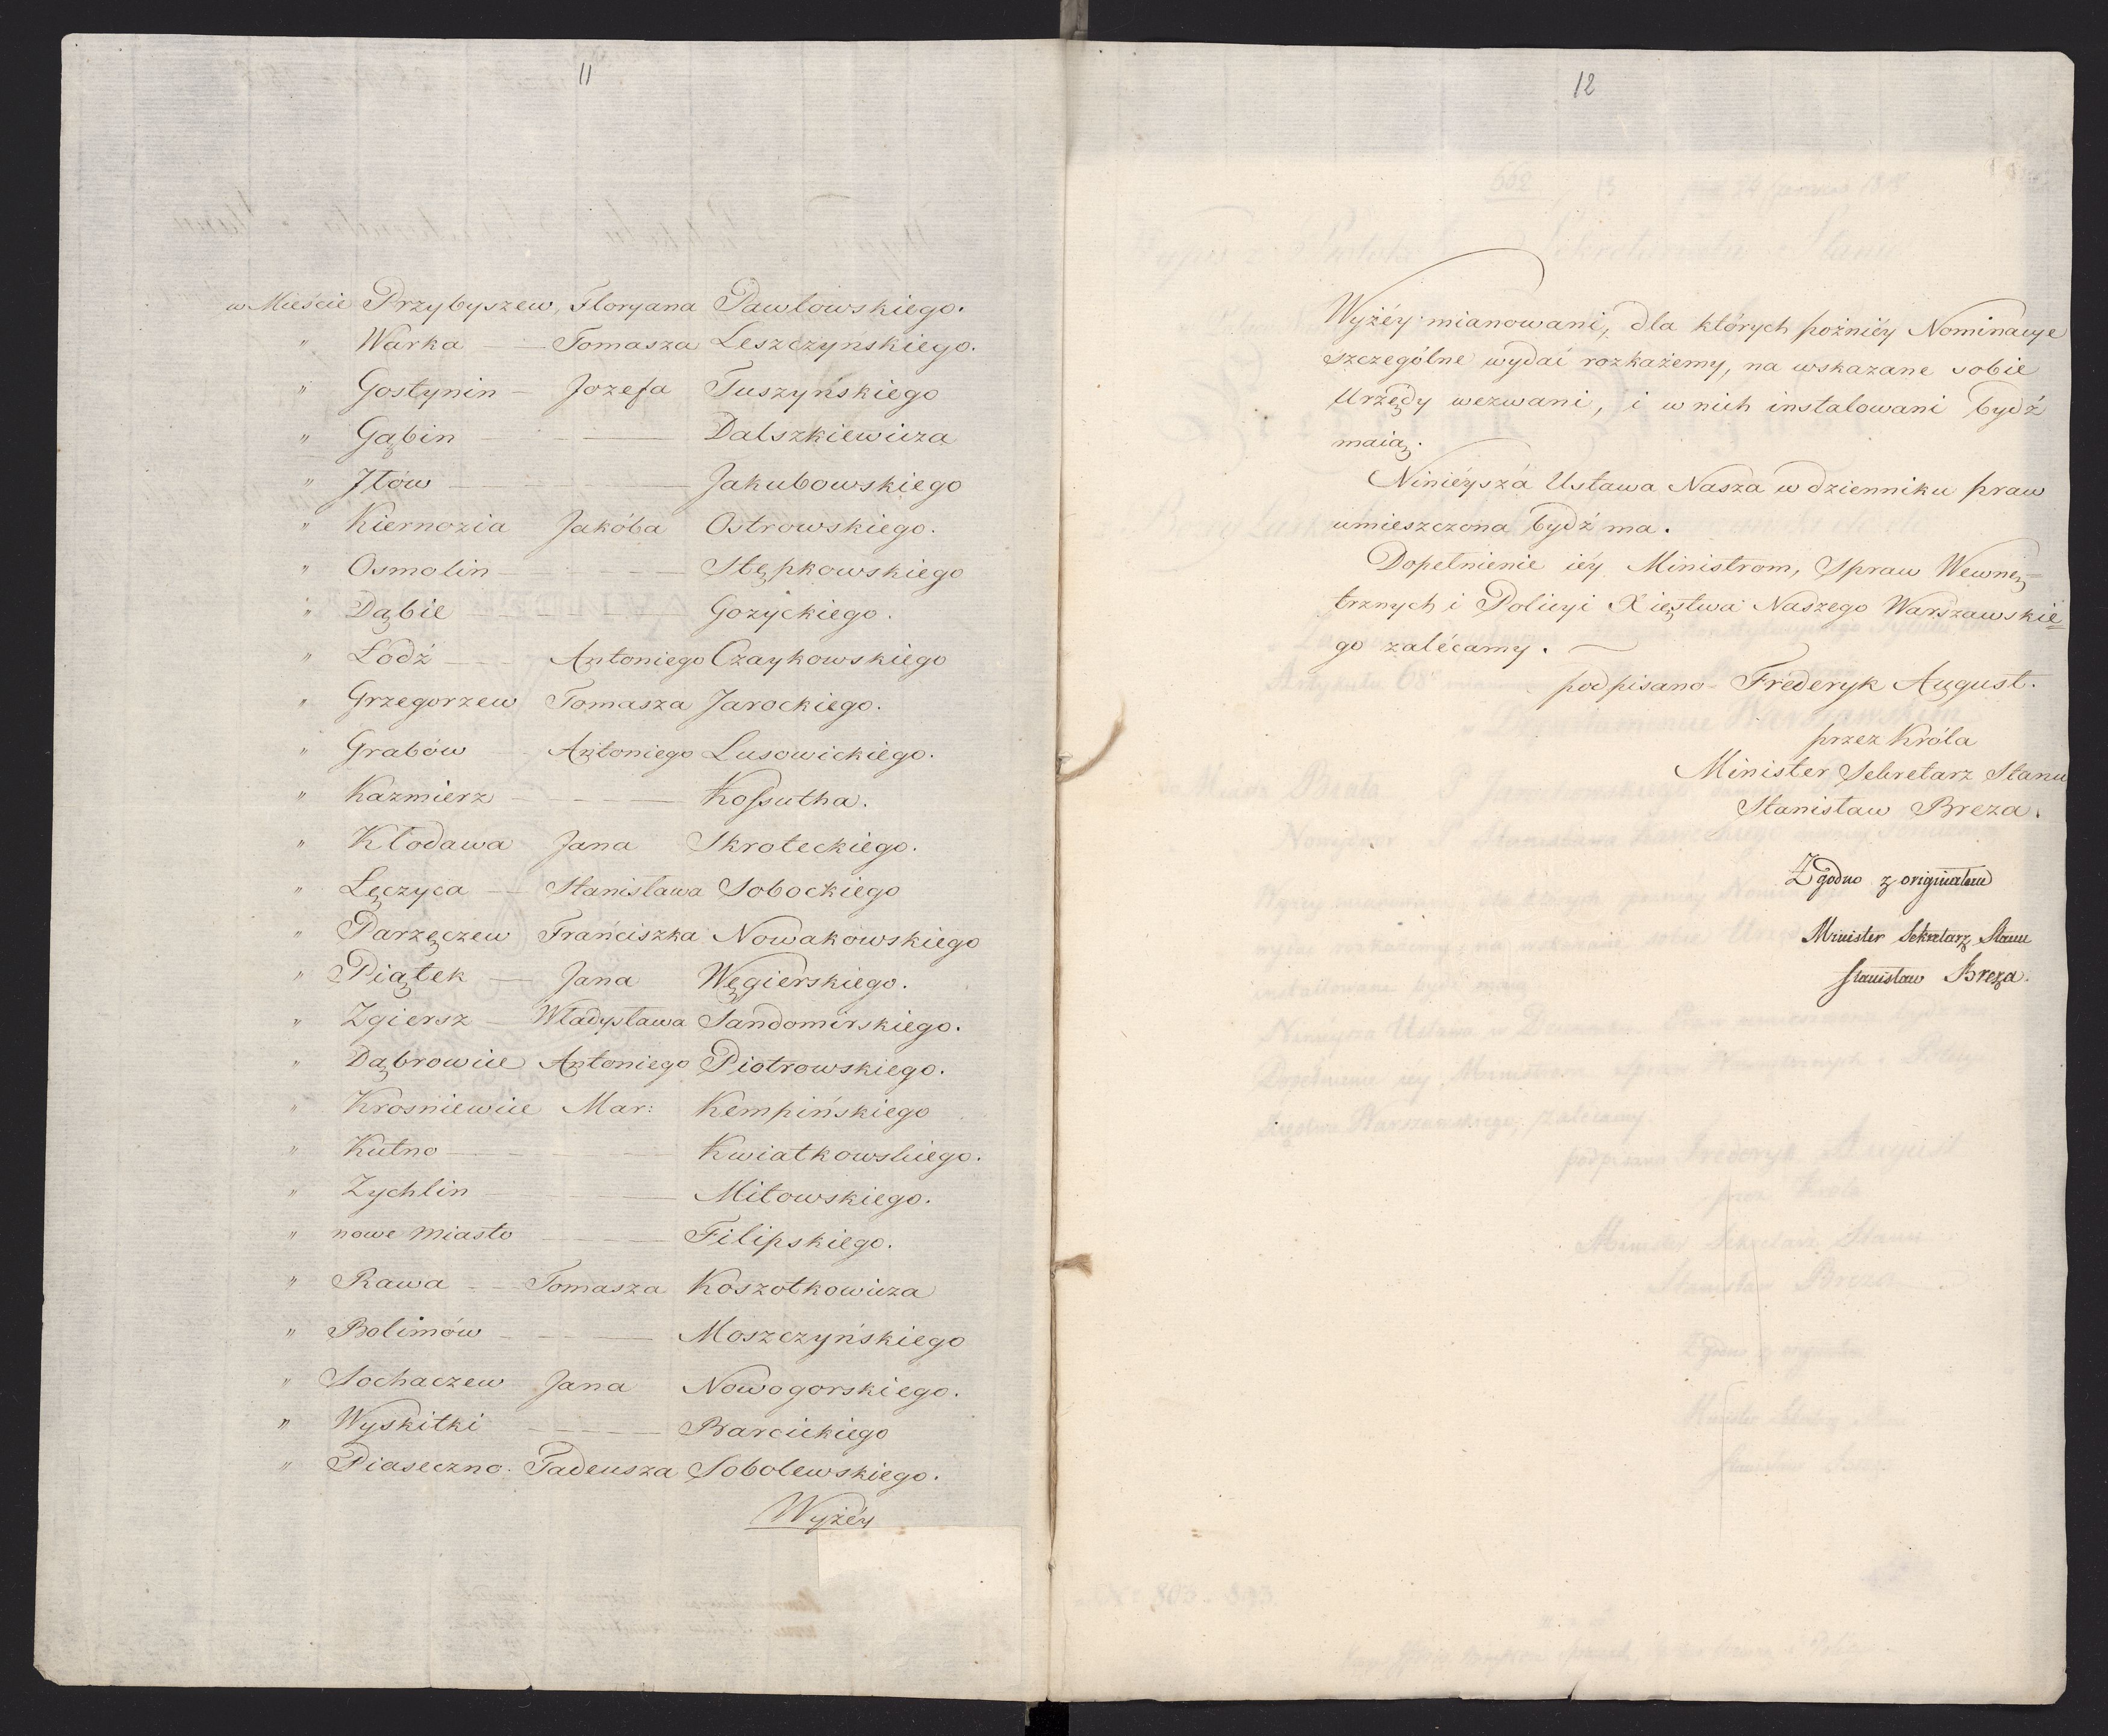 11
w Mieście Przybyszew, Floryana Pawłowskiego.
" Warka — Tomasza Leszczyńskiego.
" Gostynin — Jozefa Tuszyńskiego
" Gąbin — Dalszkiewicza
" Iłów — Jakubowskiego
" Kiernozia Jakóba Ostrowskiego.
" Osmolin — Stępkowskiego
" Dąbie — Gozyckiego.
" Łódź — Antoniego Czaykowskiego
" Grzegorzew Tomasza Jarockiego.
" Grabów — Antoniego Lusowickiego.
" Kazmierz — Kossutha.
" Kłodawa Jana Skroteckiego.
" Łęczyca — Stanisława Sobockiego
" Parzęczew Franciszka Nowakowskiego
" Piątek — Jana Węgierskiego.
" Zgiersz — Władysława Sandomirskiego.
" Dąbrowice Antoniego Piotrowskiego.
" Krosniewice Mar: Kempińskiego
" Kutno — Kwiatkowskiego.
" Zychlin — Miłowskiego.
" nowe Miasto — Filipskiego.
" Rawa — Tomasza Koszołkowicza
" Bolimów — Moszczyńskiego
" Sochaczew Jana Nowogorskiego.
" Wyskitki — Barcickiego
" Piaseczno. Tadeusza Sobolewskiego.
Wyżéy
12
Wyżéy mianowani, dla których poźniéy Nominacye
szczególne wydać rozkażemy, na wskazane sobie
Urzędy wezwani, i w nich instalowani bydź
maią.
Niniéysza Ustawa Nasza w dzienniku praw
umieszczona bydź ma.
Dopełnienie iéy Ministrom, Spraw Wewnę=
trznych i Policyi Xięstwa Naszego Warszawskie=
go zalécamy. —
podpisano Fréderyk August.
przez Króla
Minister Sekretarz Stanu
Stanisław Breza.
Zgodno z originałem
Minister Sekretarz Stanu
Stanisław Breza.